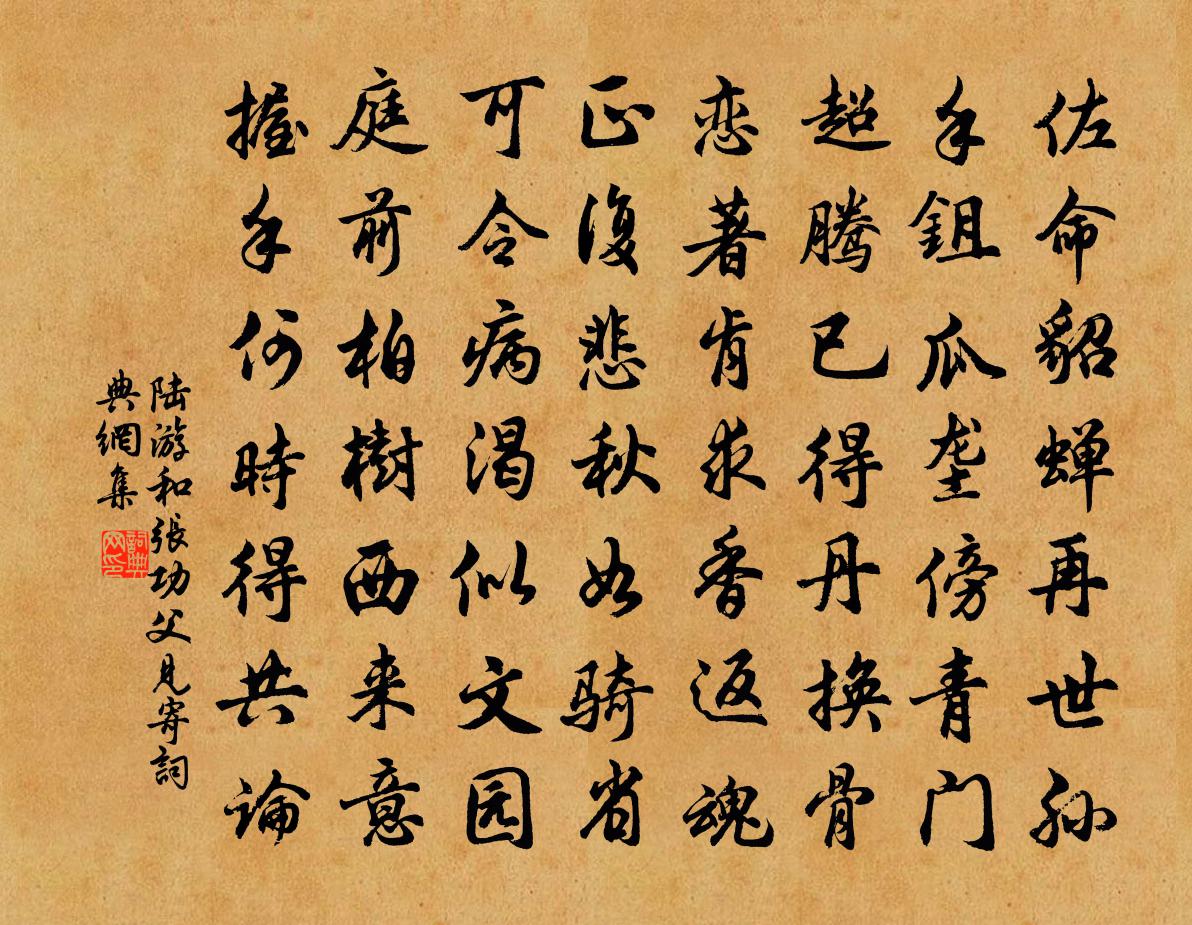 佐命貂蝉再世孙
手鉏瓜垄傍青门
超腾已得丹换骨
恋著肯求香返魂
正复悲秋如骑省
可令病渴似文园
庭前柏樹西来意
握手何時得共論
陆游和張功父見寄詞
典網集
詞典网印